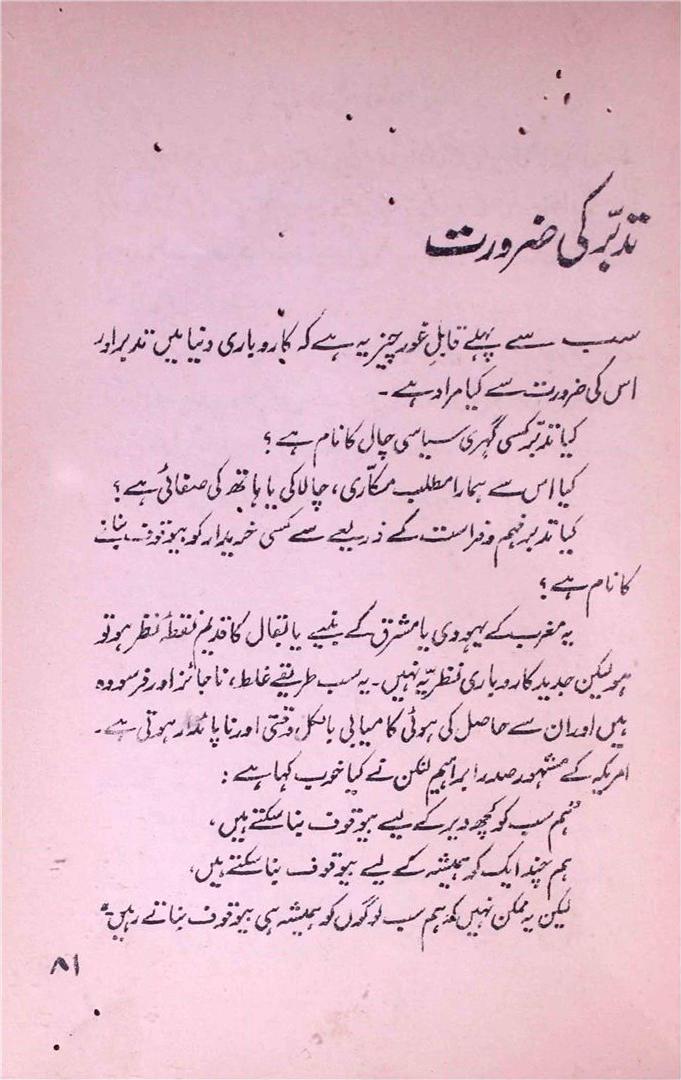 تدبّر کی ضرورت
سب سے پہلے قابلِ غور چیز یہ ہے کہ کاروباری دنیا میں تدبر اور
اس کی ضرورت سے کیا مراد ہے۔
کیا تدبّر کسی گہری سیاسی چال کا نام ہے؟
کیا اس سے ہمارا مطلب مکّاری، چالاکی یا ہاتھ کی صفائی ہے؟
کیا تدبر فہم و فراست کے ذریعے سے کسی خریدار کو بیوقوف بنانے
کا نام ہے؟
یہ مغرب کے یہودی یا مشرق کے بنیے یا بقال کا قدیم نقطۂ نظر ہو تو
ہو لیکن جدید کاروباری نظریّہ نہیں۔ یہ سب طریقے غلط، ناجائز اور فرسودہ
ہیں اور ان سے حاصل کی ہوئی کامیابی بالکل وقتی اور ناپائدار ہوتی ہے۔
امریکہ کے مشہور صدر ابراہیم لنکن نے کیا خوب کہا ہے:
"ہم سب کو کچھ دیر کے لیے بیوقوف بنا سکتے ہیں،
ہم چند ایک کو ہمیشہ کے لیے بیوقوف بنا سکتے ہیں،
لیکن یہ ممکن نہیں کہ ہم سب لوگوں کو ہمیشہ ہی بیوقوف بناتے رہیں۔"
۸۱